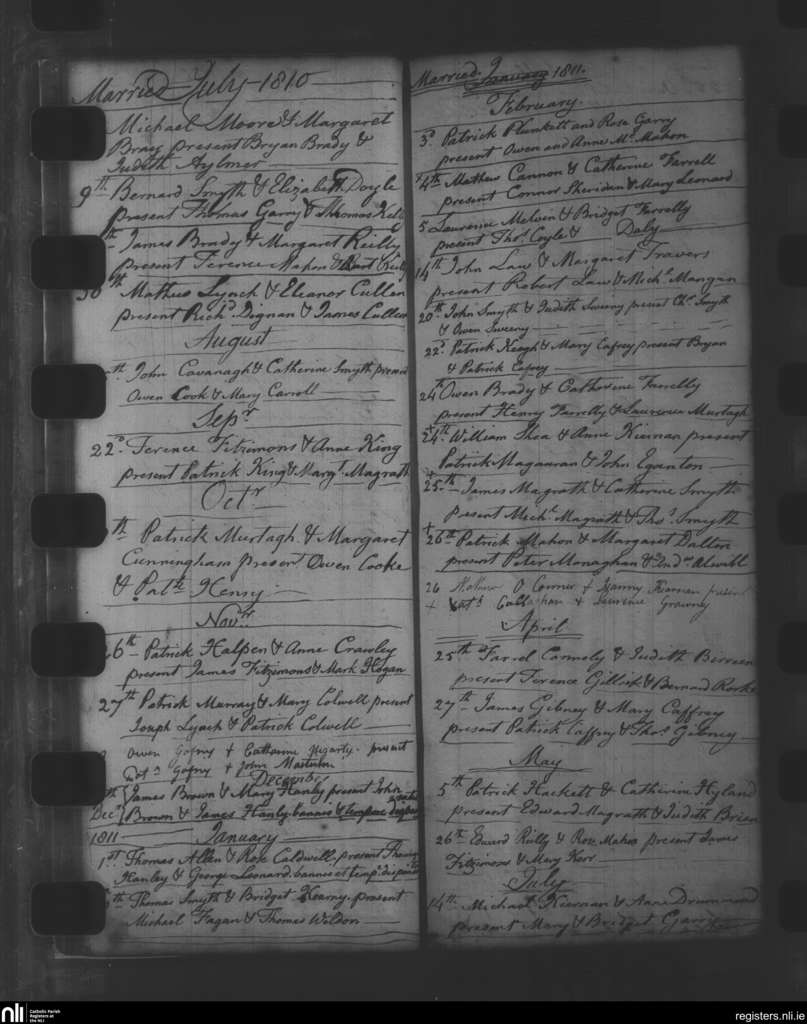 Married July 1810
Michael Moore & Margaret
Bray present Bryan Brady &
Judith Aylmer
9th Bernard Smyth & Elizabeth Doyle
present Thomas Garry & Thomas Kelly
th James Brady & Margaret Reilly
present Terence Mahon & Reilly
30th Mathew Lynch & Eleanor Cullen
present Richd Dignan & James Cullen
August
th John Cavanagh & Catherine Smyth present
Owen Cook & Mary Carroll
Sepr
22d Terence Fitzimons & Anne King
present Patrick King & Margt Magrath
Octr
th Patrick Murtagh & Margaret
Cunningham present Owen Cooke
& Patk Henry
Novr
26th Patrick Halpen & Anne Crawley
present James Fitzimons & Mark Hogan
27th Patrick Murray & Mary Colwell present
Joseph Lynch & Patrick Colwell
Owen Gafny + Catharine present
Gafny + John
December
th James Brown & Mary Hanly present John
Decr Brown & James Hanly bannis & tempore
1811 January
1st Thomas Allen & Rose Caldwell, present
Hanley & George Leonard. bannis et temp.
th Thomas Smyth & Bridget Kearny present
Michael Fagan & Thomas Weldon
Married January 1811.
February
3d Patrick Plunkett and Rose Garry
present Owen and Anne McMahon
4th Mathew Cannon & Catherine Farrell
present Connor Sheridan & Mary Leonard
5 Laurence Melvin & Bridget Farrelly
present Thos Coyle & Daly
14th John Law & Margaret Travers
present Robert Law & Michl Mangan
20th John Smyth & Judith Sweeny present Chs Smyth
& Owen Sweeny
22d Patrick Keogh & Mary Cafrey present Bryan
& Patrick Cafrey
24th Owen Brady & Catherine Farrelly
present Henry Farrelly & Laurence Murtagh
+
24th William Shea & Anne Kiernan present
Patrick Magauran & John Eganton
+
25th James Magrath & Catherine Smyth
present Michl Magrath & Thos Smyth
+
26th Patrick Mahon & Margaret Dalton
present Peter Monaghan &
26 O Connor + Kiernan present
+ Callaghan + Laurence
April
25th Farrel Connely & Judith
present Terence Gillick & Bernard Rorke
27th James Gibney & Mary Caffrey
present Patrick Caffrey & Thos Gibney
May
5th Patrick Hackett & Catherine Hyland
present Edward Magrath & Judith Brien
26th Edward Reilly & Rose Mahon present James
Fitzimons & Mary Kerr
July
14th Michael Kiernan & Anne Drummond
present Mary & Bridget Garry
nli Catholic Parish
Registers at
the NLI
registers.nli.ie